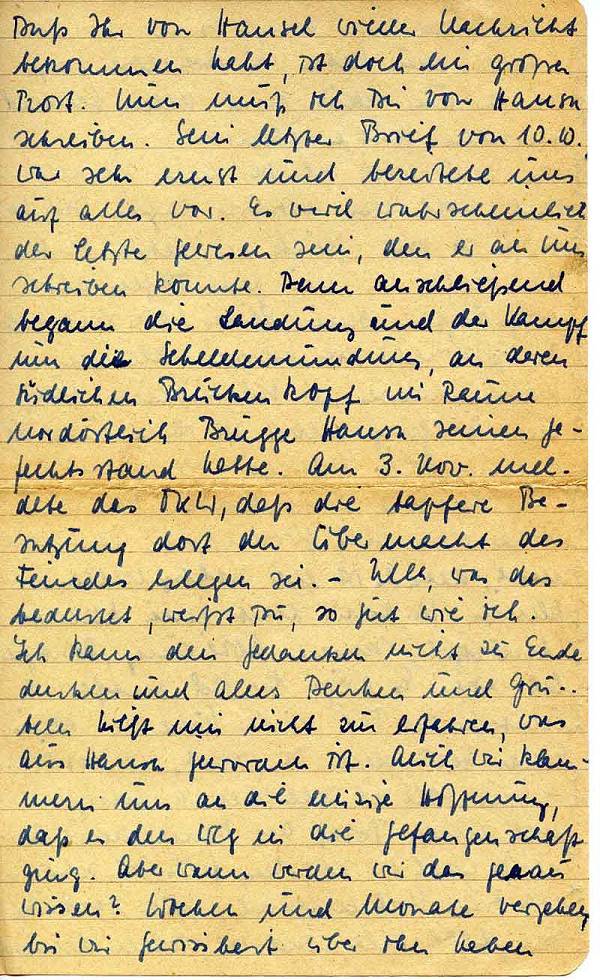 Daß Ihr von Hansel wieder Nachricht
bekommen habt, ist doch ein großer
Trost. Nun muß ich Dir von Hansn
schreiben. Sein letzter Brief vom 10.10.
war sehr ernst und bereitete uns
auf alles vor. Es wird wahrscheinlich
der letzte gewesen sein, den er an uns
schreiben konnte. Denn anschließend
begann die Landung und der Kampf
um die Scheldemündung, an deren
südlichen Brückenkopf im Raume
nordöstlich Brügge Hansn seinen Ge-
fechtsstand hatte. Am 3. Nov. mel-
dete das OKW, daß die tapfere Be-
satzung dort der Übermacht des
Feindes erlegen sei. – Ulla, was das
bedeutet, weißt Du, so gut wie ich.
Ich kann den Gedanken nicht zu Ende
denken und alles Denken und Grü-
beln hilft mir nicht zu erfahren, was
aus Hansn geworden ist. Auch wir klam-
mern uns an die einzige Hoffnung,
daß er den Weg in die Gefangenschaft
ging. Aber wann werden wir das genau
wissen? Wochen und Monate vergehen,
bis wir Gewissheit über ihn haben